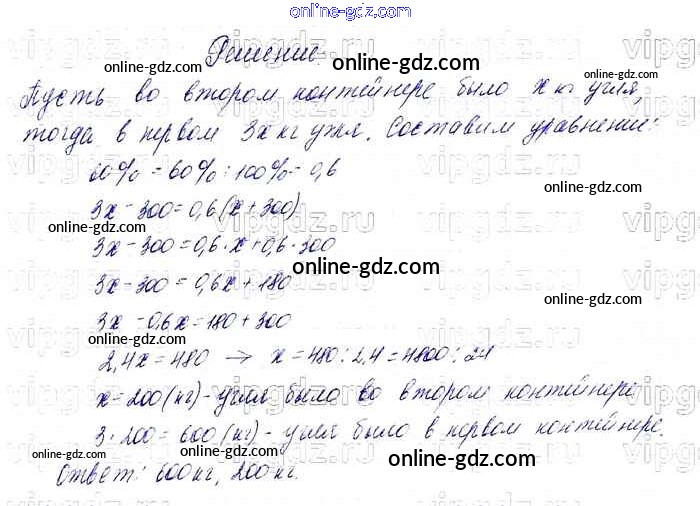 online-gdz.com
Решение.
Пусть во втором контейнере было x кг угля,
тогда в первом 3x кг угля. Составим уравнение:
60% = 60% : 100% = 0,6
3x - 300 = 0,6(x + 300)
3x - 300 = 0,6 · x + 0,6 · 300
3x - 300 = 0,6x + 180
3x - 0,6x = 180 + 300
2,4x = 480 → x = 480 : 2,4 = 4800 : 24
x = 200 (кг) - угля было во втором контейнере
3 · 200 = 600 (кг) - угля было в первом контейнере.
Ответ: 600 кг, 200 кг.
online-gdz.com
online-gdz.com
online-gdz.com
online-gdz.com
online-gdz.com
online-gdz.com
online-gdz.com
online-gdz.com
online-gdz.com